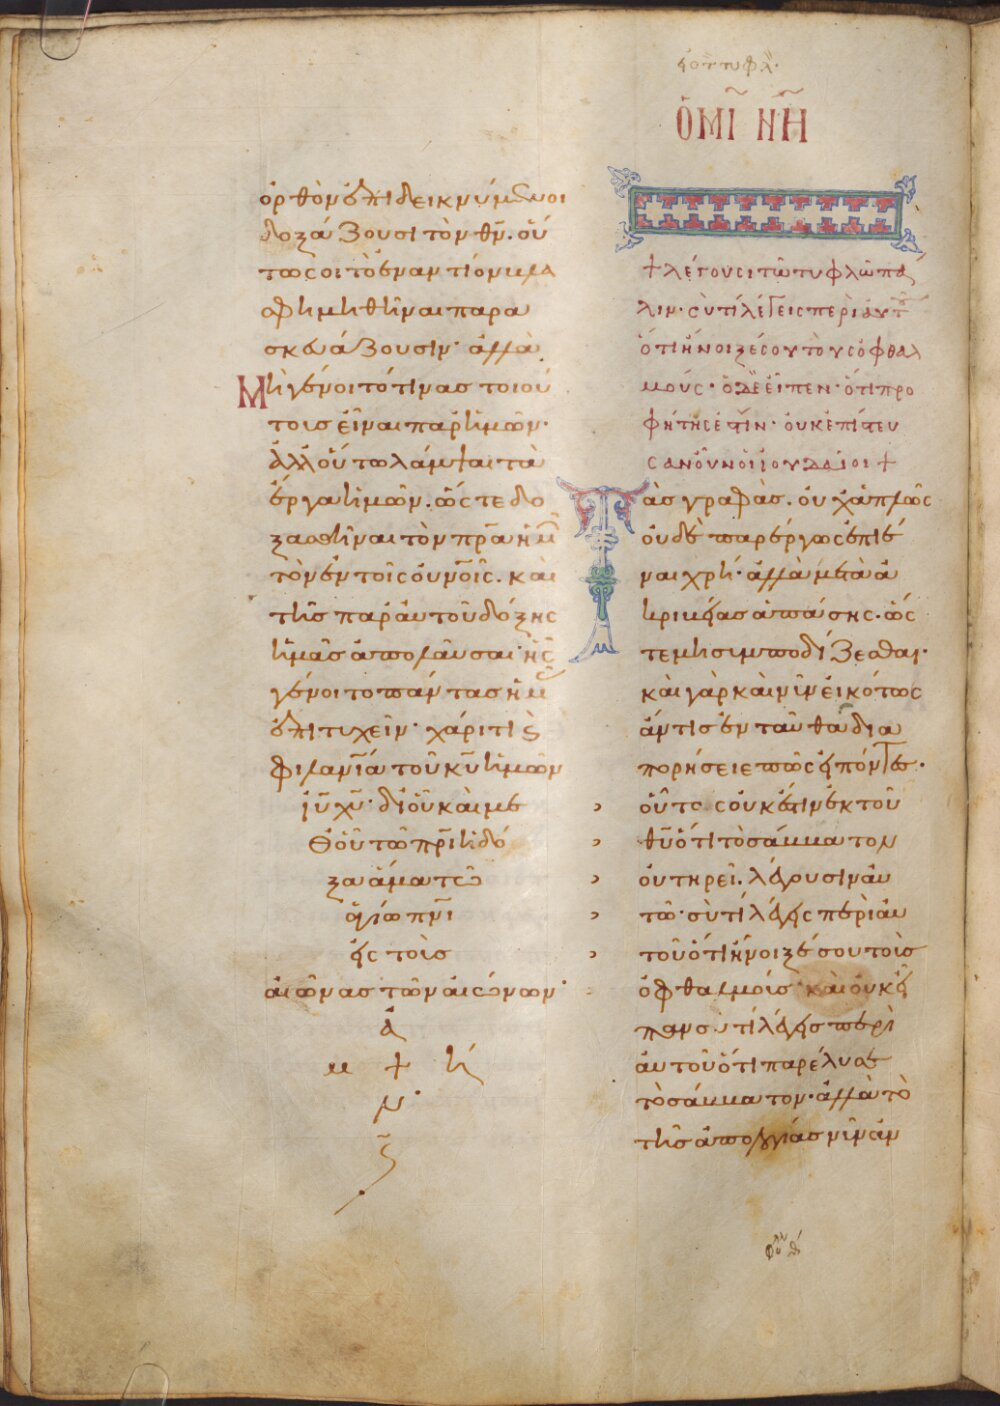 ὀρθὸν ἐπιδεικνύμενοι
δοξάζουσι τὸν θν̄. οὕ
τως οἱ τὸ ἐναντίον βλα
σφημηθῆναι παρα
σκευάζουσιν· ἀλλὰ
Μὴ γένοιτό τινας τοιού
τους εἶναι παρ' ἡμῶν·
ἀλλ' οὕτω λάμψαι τὰ
ἔργα ἡμῶν. ὥστε δο
ξασθῆναι τὸν πρ̄α ἡμ
τὸν ἐν τοῖς οὐν̄οῖς. καὶ
τῆς παρ' αὐτοῦ δόξης
ἡμᾶς ἀπολαῦσαι· ἧς
γένοιτο πάντας ἡμ
ἐπιτυχεῖν· χάριτι ϗ
φιλαν̄ία τοῦ κῡ ἡμῶν
ἰῦ χῦ· δι' οὗ καὶ με
θ' οὗ τῷ πρ̄ὶ ἡ δό
ξα ἅμα τῷ
ἁγίω πν̄ι
εἰς τοὺς
αἰῶνας τῶν αἰώνων·
ἀ
μ + ή
ν·
ὁμι νη
+ λέγουσι τῶ τυφλῶ πά
λιν· σὺ τί λέγεις περὶ αυτ
ὅτι ἤνοιξέ σου τοὺς ὀφθαλ
μούς· ὁ δὲ εἶπεν· ὅτι προ
φήτης ἐστὶν· οὐκ ἐπίστευ
σαν οὖν οἱ ἰουδαῖοι +
Τὰς γραφὰς. οὐχ ἁπλῶς
οὐδὲ παρέργως ἐπιέ
ναι χρή· ἀλλὰ μετὰ ἀ
κριβείας ἁπάσης· ὥς
τε μὴ συμποδίζεσθαι·
καὶ γὰρ καὶ νῦν εἰκότως
ἄν τις ἐνταῦθα δια
πορήσειε πῶς εἰπόντες·
οὗτος οὐκ ἔστιν ἐκ τοῦ
θῦ ὅτι τὸ σάββατον
οὐ τηρεῖ. λέγουσιν αὐ
τῶ· σὺ τί λέγεις περὶ αὐ
τοῦ ὅτι ἤνοιξέ σου τοὺς
ὀφθαλμούς· καὶ οὐκ εἶ
πον συ τί λέγεις περὶ
αὐτοῦ ὅτι παρέλυσε
τὸ σάββατον· ἀλλὰ τὸ
τῆς ἀπολογίας νῦν ἀν